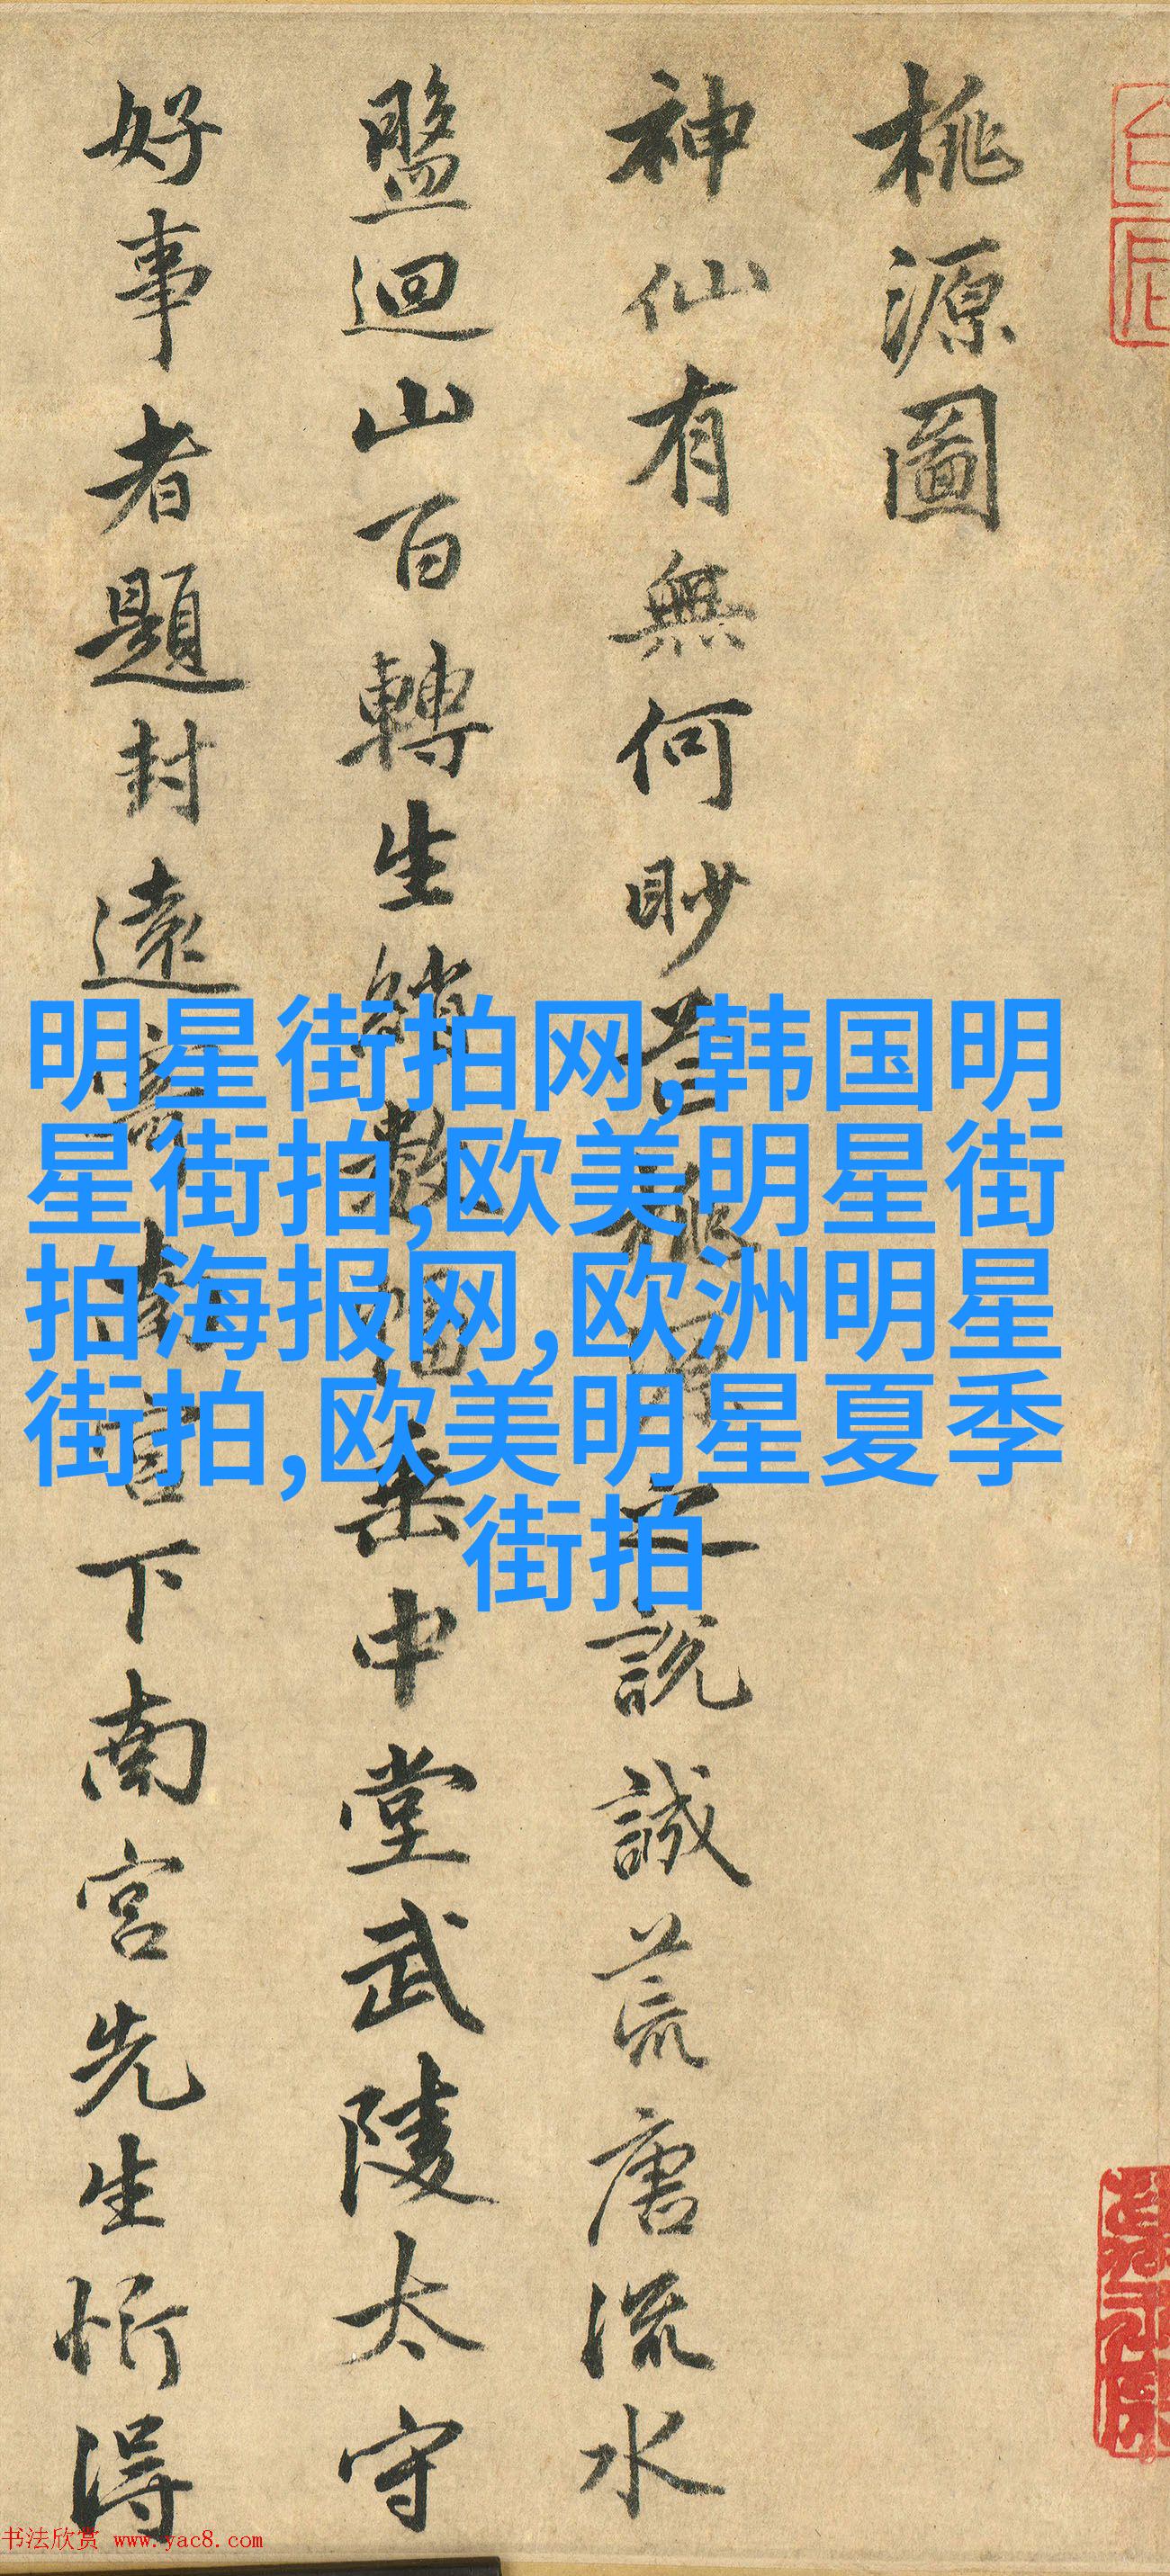 桃源圖
神仙有無何眇芒桃源之說誠荒唐流水
盤迴山百轉生綃數幅垂中堂武陵太守
好事者題封遠寄南宮下南宮先生忻得
明星街拍网,韩国明
星街拍,欧美明星街
拍海报网,欧洲明星
街拍,欧美明星夏季
街拍
书法欣赏 www.yac8.com